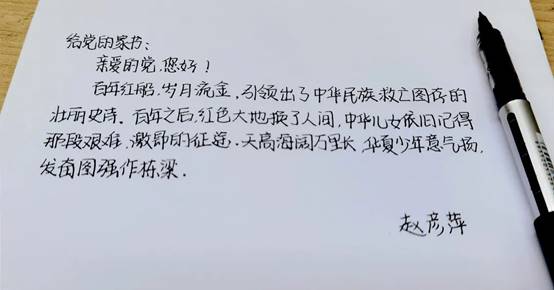 给党的家书:
亲爱的党,您好!
百年红船,岁月流金,引领出了中华民族救亡图存的
壮丽史诗。百年之后,红色大地换了人间,中华儿女依旧记得
那段艰难,激昂的征途。天高海阔万里长,华夏少年意气扬,
发奋图强作栋梁。
赵彦萍